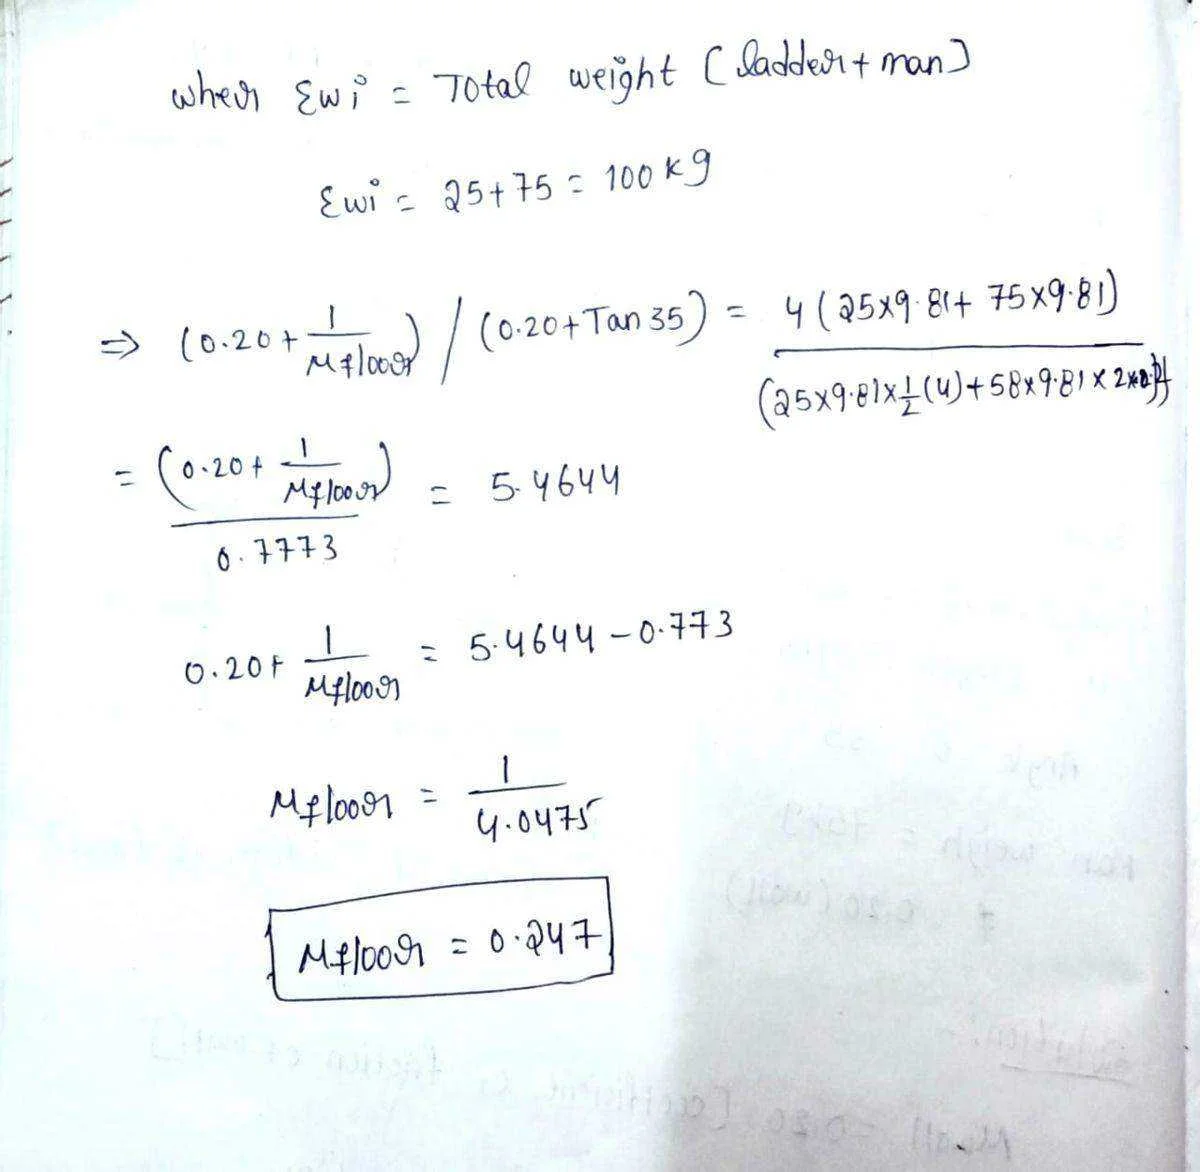 where Σwi = Total weight (ladder + man)
Σwi = 25+75 = 100 kg
⇒ (0.20 + 1/μfloor) / (0.20 + Tan 35) = 4 (25×9.81 + 75×9.81) / (25×9.81×1/2(4) + 58×9.81×
= (0.20 + 1/μfloor) / 0.7773 = 5.4644
0.20 + 1/μfloor = 5.4644 - 0.773
μfloor = 1/4.0475
μfloor = 0.247